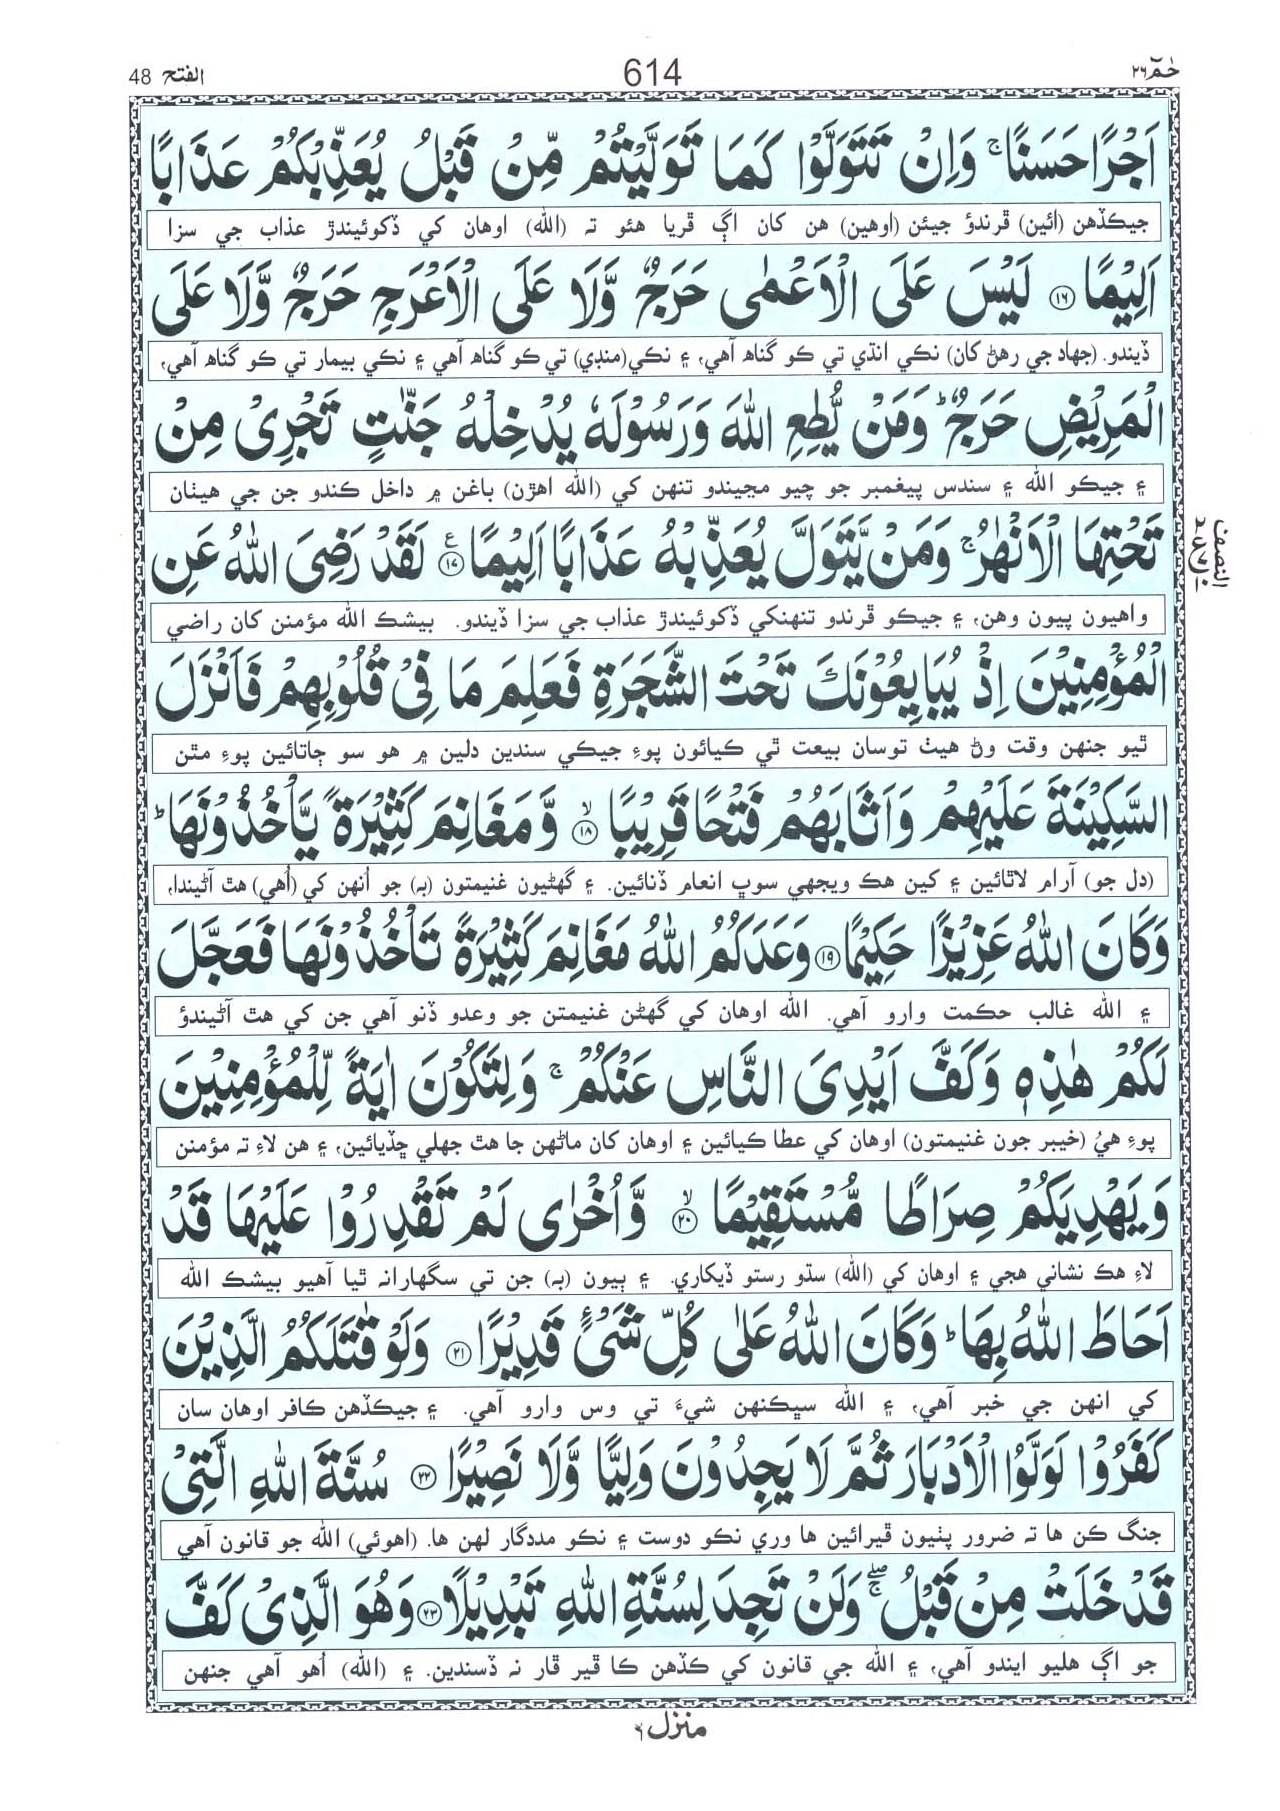 حٰمٓ ٢٦
614
الفتح 48
اَجْرًا حَسَنًا ۚ وَاِنْ تَتَوَلَّوْا كَمَا تَوَلَّيْتُمْ مِّنْ قَبْلُ يُعَذِّبْكُمْ عَذَابًا
جيڪڏهن (ائين) ڦرندؤ جيئن (اوهين) هن کان اڳ ڦريا هئو تہ (الله) اوهان کي ڏکوئيندڙ عذاب جي سزا
اَلِيْمًا ۝١٦ لَيْسَ عَلَى الْاَعْمٰى حَرَجٌ وَّلَا عَلَى الْاَعْرَجِ حَرَجٌ وَّلَا عَلَى
ڏيندو. (جهاد جي رهڻ کان) نڪي انڌي تي ڪو گناھ آهي، ۽ نڪي(منڊي) تي ڪو گناھ آهي ۽ نڪي بيمار تي ڪو گناھ آهي،
الْمَرِيْضِ حَرَجٌ ؕ وَمَنْ يُّطِعِ اللّٰهَ وَرَسُوْلَهٗ يُدْخِلْهُ جَنّٰتٍ تَجْرِيْ مِنْ
۽ جيڪو الله ۽ سندس پيغمبر جو چيو مڃيندو تنهن کي (الله اهڙن) باغن ۾ داخل ڪندو جن جي هيٺان
تَحْتِهَا الْاَنْهٰرُ ۚ وَمَنْ يَّتَوَلَّ يُعَذِّبْهُ عَذَابًا اَلِيْمًا ۝١٧ ع لَقَدْ رَضِيَ اللّٰهُ عَنِ
النصف
واهيون پيون وهن، ۽ جيڪو ڦرندو تنهنکي ڏکوئيندڙ عذاب جي سزا ڏيندو. بيشڪ الله مؤمنن کان راضي
الْمُؤْمِنِيْنَ اِذْ يُبَايِعُوْنَكَ تَحْتَ الشَّجَرَةِ فَعَلِمَ مَا فِيْ قُلُوْبِهِمْ فَاَنْزَلَ
ٿيو جنهن وقت وڻ هيٺ توسان بيعت ٿي ڪيائون پوءِ جيڪي سندين دلين ۾ هو سو ڄاتائين پوءِ مٿن
السَّكِيْنَةَ عَلَيْهِمْ وَاَثَابَهُمْ فَتْحًا قَرِيْبًا ۝١٨ۙ وَّمَغَانِمَ كَثِيْرَةً يَّاْخُذُوْنَهَا ؕ
(دل جو) آرام لاٿائين ۽ کين هڪ ويجهي سوڀ انعام ڏنائين. ۽ گهڻيون غنيمتون (بہ) جو اُنهن کي (اُهي) هٿ آڻيندا،
وَكَانَ اللّٰهُ عَزِيْزًا حَكِيْمًا ۝١٩ وَعَدَكُمُ اللّٰهُ مَغَانِمَ كَثِيْرَةً تَاْخُذُوْنَهَا فَعَجَّلَ
۽ الله غالب حڪمت وارو آهي. الله اوهان کي گهڻن غنيمتن جو وعدو ڏنو آهي جن کي هٿ آڻيندؤ
لَكُمْ هٰذِهٖ وَكَفَّ اَيْدِيَ النَّاسِ عَنْكُمْ ۚ وَلِتَكُوْنَ اٰيَةً لِّلْمُؤْمِنِيْنَ
پوءِ هيُ (خيبر جون غنيمتون) اوهان کي عطا ڪيائين ۽ اوهان کان ماڻهن جا هٿ جهلي ڇڏيائين، ۽ هن لاءِ تہ مؤمنن
وَيَهْدِيَكُمْ صِرَاطًا مُّسْتَقِيْمًا ۝٢٠ۙ وَّاُخْرٰى لَمْ تَقْدِرُوْا عَلَيْهَا قَدْ
لاءِ هڪ نشاني هجي ۽ اوهان کي (الله) سڌو رستو ڏيکاري. ۽ ٻيون (بہ) جن تي سگهارانہ ٿيا آهيو بيشڪ الله
اَحَاطَ اللّٰهُ بِهَا ؕ وَكَانَ اللّٰهُ عَلٰى كُلِّ شَيْءٍ قَدِيْرًا ۝٢١ وَلَوْ قٰتَلَكُمُ الَّذِيْنَ
کي انهن جي خبر آهي، ۽ الله سڀڪنهن شيءَ تي وس وارو آهي. ۽ جيڪڏهن ڪافر اوهان سان
كَفَرُوْا لَوَلَّوُا الْاَدْبَارَ ثُمَّ لَا يَجِدُوْنَ وَلِيًّا وَّلَا نَصِيْرًا ۝٢٢ سُنَّةَ اللّٰهِ الَّتِيْ
جنگ ڪن ها تہ ضرور پٺيون ڦيرائين ها وري نڪو دوست ۽ نڪو مددگار لهن ها. (اهوئي) الله جو قانون آهي
قَدْ خَلَتْ مِنْ قَبْلُ ۖۚ وَلَنْ تَجِدَ لِسُنَّةِ اللّٰهِ تَبْدِيْلًا ۝٢٣ وَهُوَ الَّذِيْ كَفَّ
جو اڳ هليو ايندو آهي، ۽ الله جي قانون کي ڪڏهن ڪا ڦير ڦار نہ ڏسندين. ۽ (الله) اُهو آهي جنهن
منزل ٦